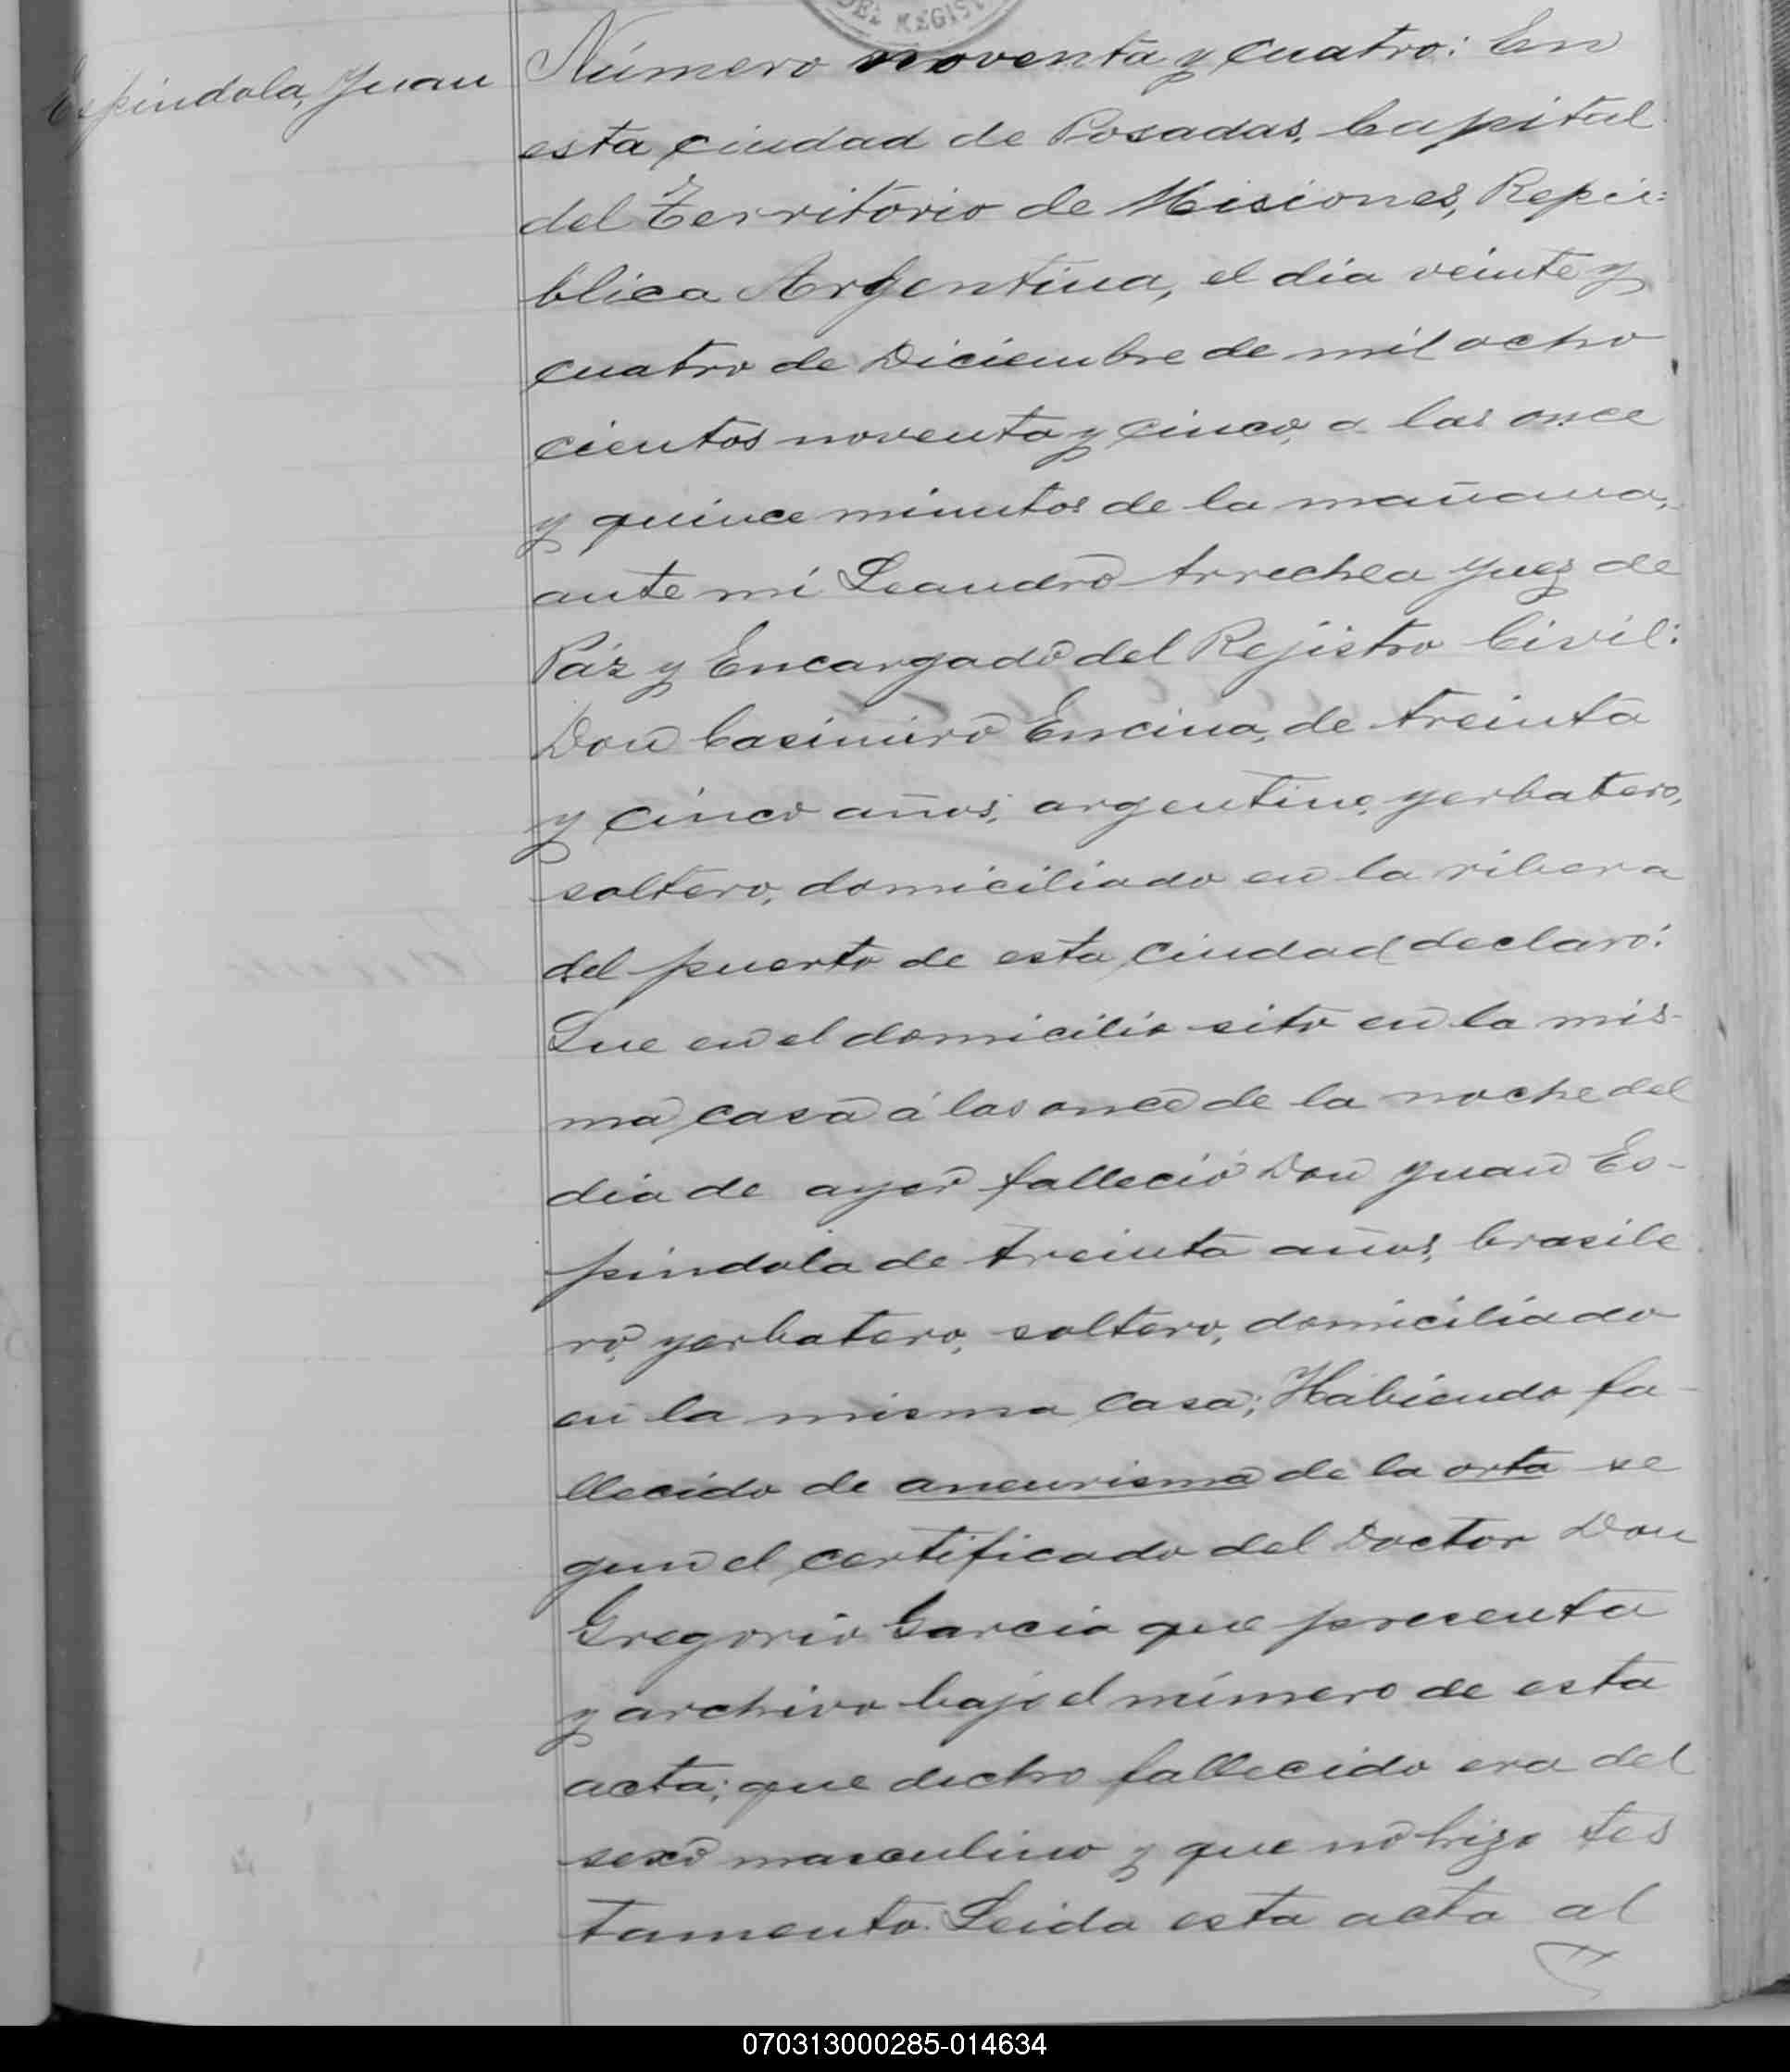 DEL REGIST
Espindola, Juan
Número noventa y cuatro: En
esta ciudad de Posadas, Capital
del Territorio de Misiones, Repú:
blica Argentina, el dia veinte y
cuatro de Diciembre de mil ocho
cientos noventa y cinco, a las once
y quince minutos de la mañana,
ante mi Leandro Arrechea Juez de
Páz y Encargado del Rejistro Civil:
Don Casimiro Encina, de treinta
y cinco años, argentino, yerbatero,
soltero, domiciliado en la ribera
del puerto de esta ciudad declaró:
Que en el domicilio sito en la mis-
ma casa á las once de la noche del
dia de ayer falleció Don Juan Es-
pindola de treinta años, brasile
ro, yerbatero, soltero, domiciliado
en la misma casa; Habiendo fa-
llecido de aneurisma de la orta se
gun el certificado del Doctor Don
Gregorio Garcia que presenta
y archivo bajo el número de esta
acta; que dicho fallecido era del
sexo masculino y que no hizo tes
tamento. Leida esta acta al
070313000285-014634